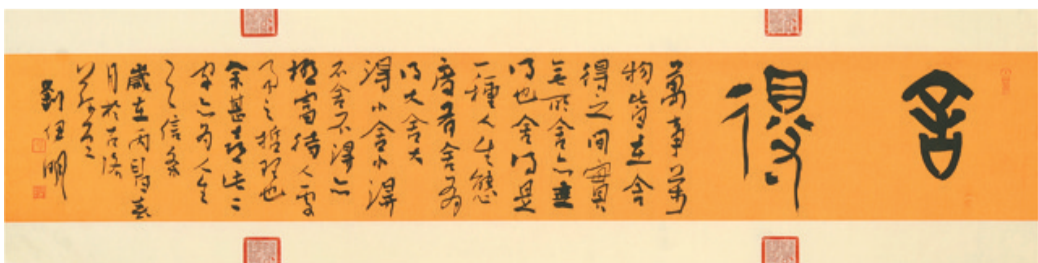 舍
得
萬事萬
物皆在舍
得之间實
無所舍亦無
得也舍得是
一種人生態
度有舍有
得大舍大
得小舍小得
不舍不得亦
極富待人處
事之哲理也
余甚喜此二
字亦為人生
之信条
歲在丙申春
月於古洛
劉 明